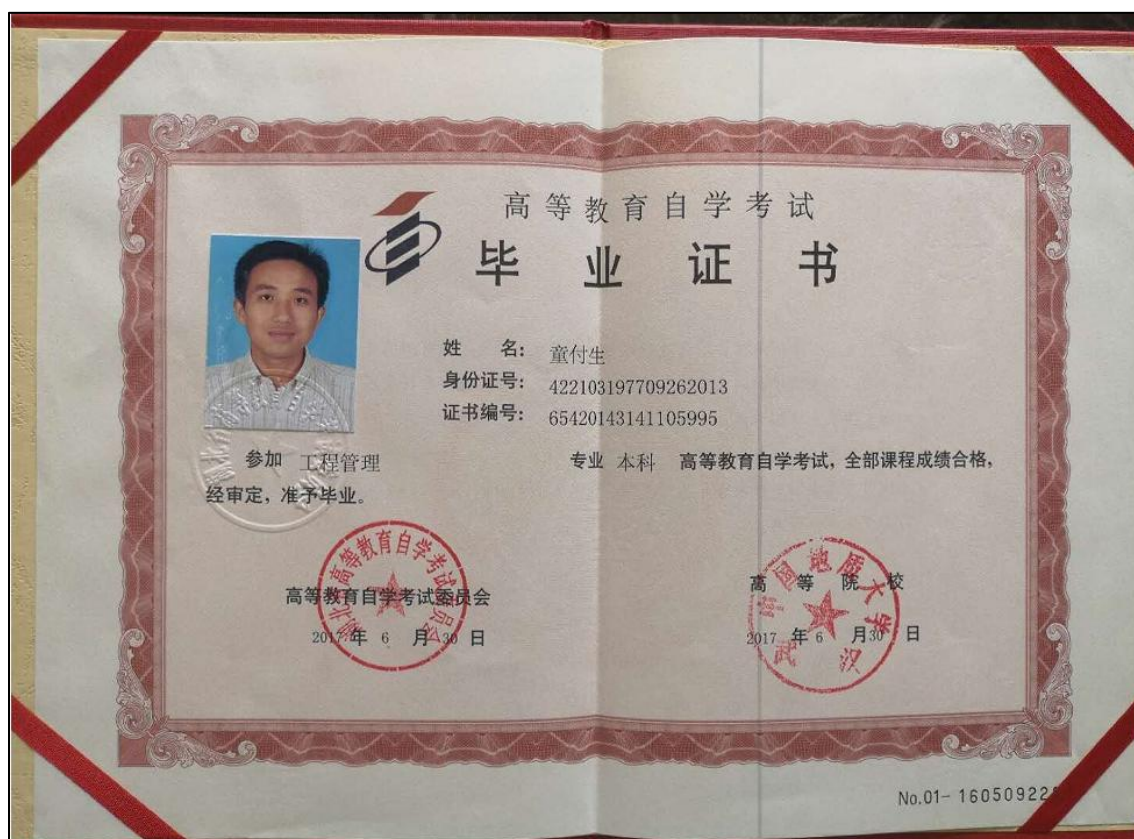 高等教育自学考试
毕业证书
姓 名: 童付生
身份证号: 422103197709262013
证书编号: 65420143141105995
参加 工程管理 专业 本科 高等教育自学考试, 全部课程成绩合格,
经审定, 准予毕业。
高等教育自学考试委员会
2017 年 6 月 30 日
高等教育自学考试委员会
高 等 院 校
2017 年 6 月 30 日
中国地质大学
武汉
No.01- 16050922